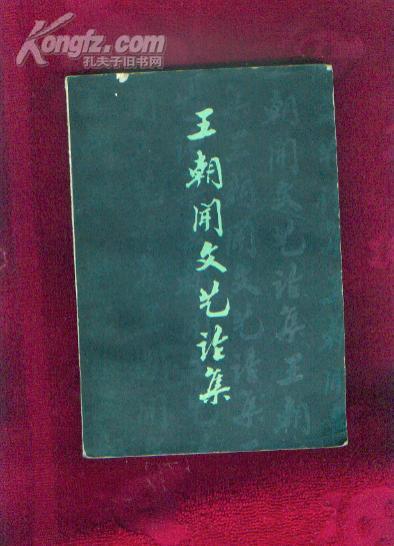 Kongfz.com
孔夫子旧书网
王朝闻文艺论集
朝闻文艺论集王朝
闻文艺论集